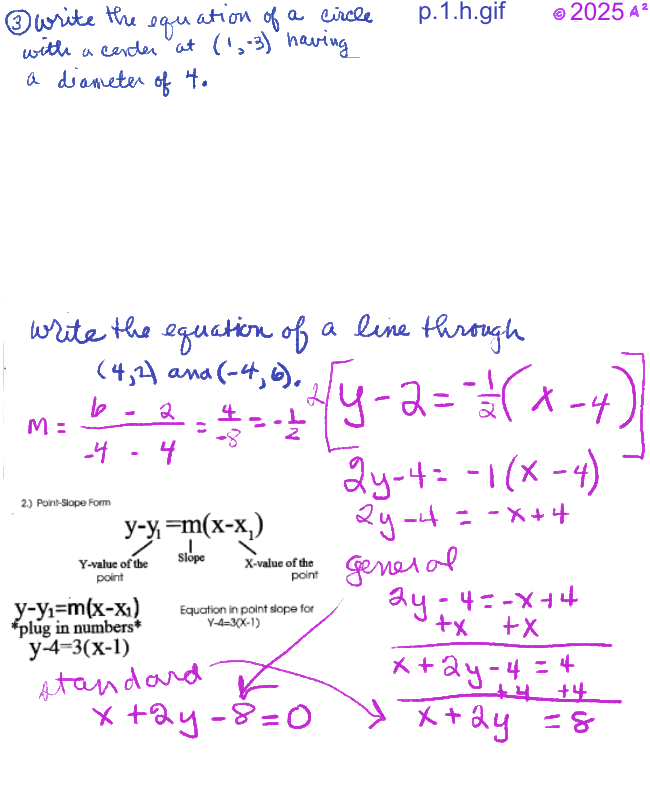 ③ Write the equation of a circle
with a center at (1,-3) having
a diameter of 4.
p.1.h.gif
© 2025 A²
Write the equation of a line through
(4,2) and (-4,6).
m = 6 - 2 / -4 - 4 = 4/-8 = -1/2
2[y-2 = -1/2(x-4)]
2y-4 = -1(x-4)
2y-4 = -x+4
2.) Point-Slope Form
y-y₁=m(x-x₁)
Y-value of the point
Slope
X-value of the point
y-y₁=m(x-x₁)
*plug in numbers*
y-4=3(x-1)
Equation in point slope for
Y-4=3(X-1)
general
2y-4=-x+4
+x +x
x+2y-4=4
+4 +4
x+2y =8
standard
x+2y-8=0